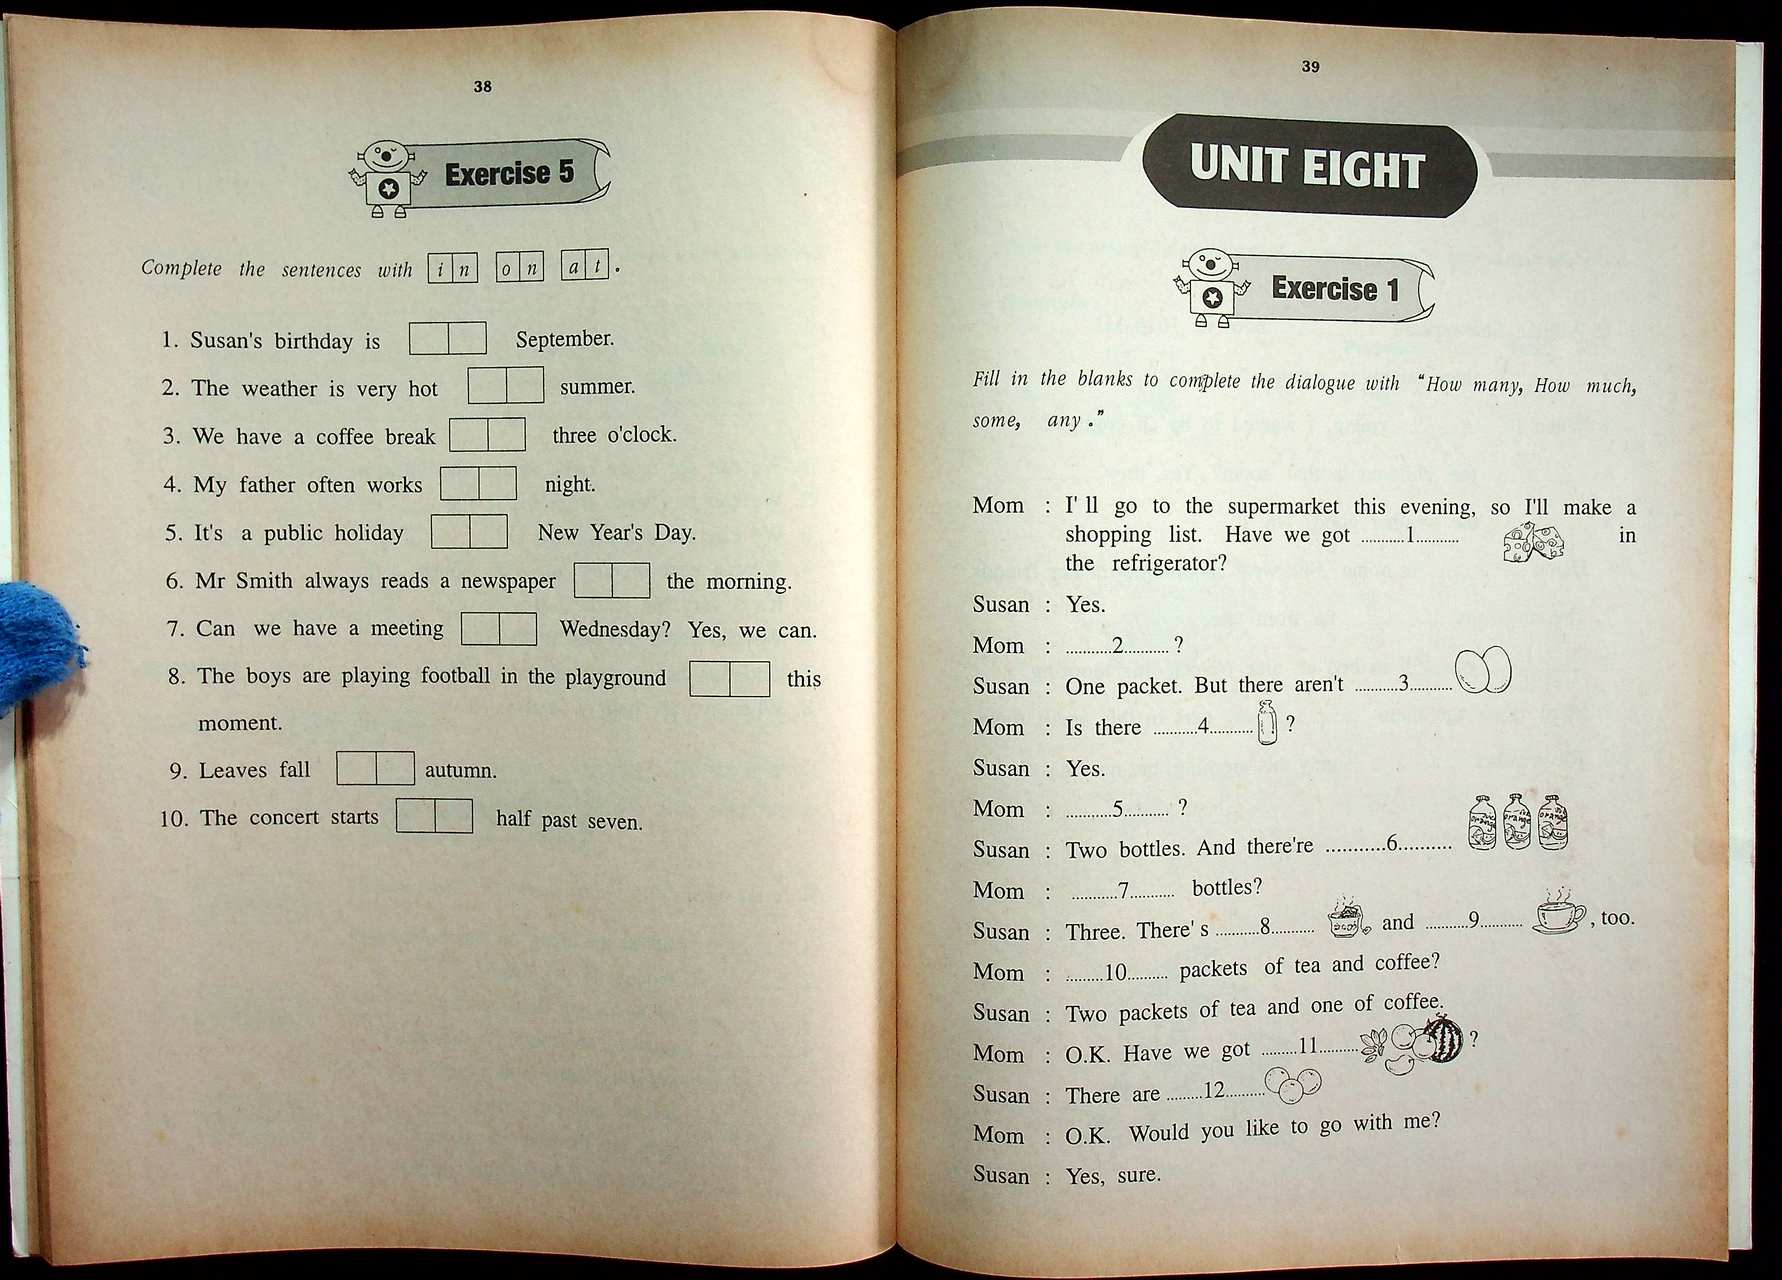 38
Exercise 5
Complete the sentences with in on at.
1. Susan's birthday is September.
2. The weather is very hot summer.
3. We have a coffee break three o'clock.
4. My father often works night.
5. It's a public holiday New Year's Day.
6. Mr Smith always reads a newspaper the morning.
7. Can we have a meeting Wednesday? Yes, we can.
8. The boys are playing football in the playground this
moment.
9. Leaves fall autumn.
10. The concert starts half past seven.
39
UNIT EIGHT
Exercise 1
Fill in the blanks to complete the dialogue with "How many, How much,
some, any."
Mom : I' ll go to the supermarket this evening, so I'll make a
shopping list. Have we got ...........1........... in
the refrigerator?
Susan : Yes.
Mom : ...........2........... ?
Susan : One packet. But there aren't ...........3...........
Mom : Is there ...........4........... ?
Susan : Yes.
Mom : ...........5........... ?
Susan : Two bottles. And there're ...........6..........
orange orange orange
Mom : ...........7........... bottles?
Susan : Three. There' s ...........8........... and ...........9..........., too.
Mom : .........10.......... packets of tea and coffee?
Susan : Two packets of tea and one of coffee.
Mom : O.K. Have we got .........11.......... ?
Susan : There are .........12..........
Mom : O.K. Would you like to go with me?
Susan : Yes, sure.